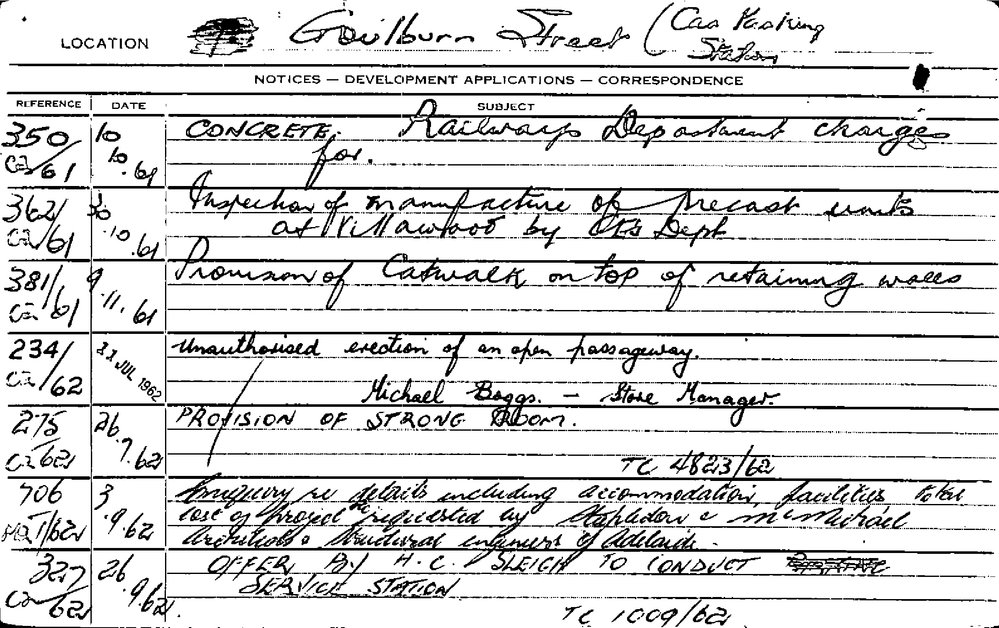 LOCATION Goulburn Street (Car Parking
Station
NOTICES — DEVELOPMENT APPLICATIONS — CORRESPONDENCE
REFERENCE DATE SUBJECT
350/ 10 CONCRETE: Railways Department charges
61 10.61 for.
362/ 30 Inspection of manufacture of precast units
61 .10.61 at Villawood by Dept
381/61 9 Provision of Catwalk on top of retaining walls
.11.61
234/ 31 JUL 1962 Unauthorised erection of an open passageway.
62 Michael Boggs. — Store Manager.
275 26 PROVISION OF STRONG ROOM.
62 .7.62 TC 4823/62
706 3 Enquiry re details including accommodation, facilities total
/62 .9.62 cost of project etc requested by Stapledon & McMichael
Architects & structural engineers of Adelaide.
327 26 OFFER BY H.C. SLEIGH TO CONDUCT
62 .9.62. SERVICE STATION
TC 1009/62